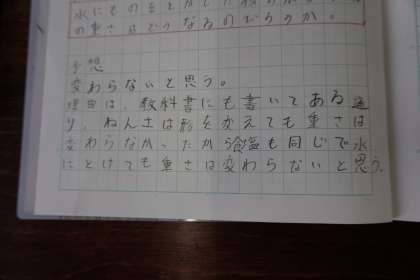 水にものをとかした
の重さはどうなるのだろうか。
予想
変わらないと思う。
理由は、教科書にも書いてある通
り、ねん土は形を変えても重さは
変わらなかったから食塩も同じで水
にとけても重さは変わらないと思う。